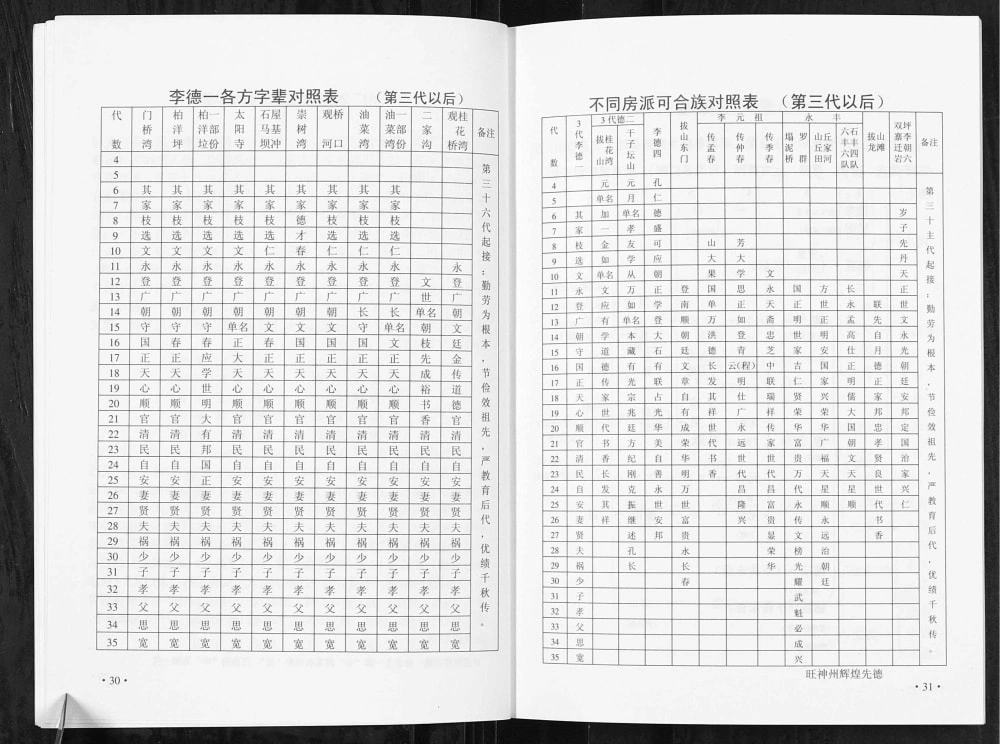 李德一各方字辈对照表 （第三代以后）
代数 门桥湾 柏洋坪 柏一洋部垃份 太阳寺 石屋马基坝冲 崇树湾 观桥河口 油菜湾 油一菜部湾份 二家沟 观桂花桥湾 备注
4
5
6 其 其 其 其 其 其 其 其 其
7 家 家 家 家 家 家 家 家 家
8 枝 枝 枝 枝 枝 德 枝 枝 枝
9 选 选 选 选 选 才 选 选 选
10 文 文 文 文 仁 春 仁 仁 仁
11 永 永 永 永 永 永 永 永 永 永
12 登 登 登 登 登 登 登 登 登 文 登
13 广 广 广 广 广 广 广 广 广 世 广
14 朝 朝 朝 朝 朝 朝 朝 长 长 单名 朝
15 守 守 守 单名 文 文 文 守 单名 朝 文
16 国 春 春 正 春 国 国 国 文 枝 廷
17 正 正 应 大 正 正 正 正 正 先 金
18 天 天 学 天 天 天 天 天 天 成 传
19 心 心 世 心 心 心 心 心 心 裕 道
20 顺 顺 明 顺 顺 顺 顺 顺 顺 书 德
21 官 官 大 官 官 官 官 官 官 香 官
22 清 清 有 清 清 清 清 清 清 清 清
23 民 民 邦 民 民 民 民 民 民 民 民
24 自 自 国 自 自 自 自 自 自 自 自
25 安 安 正 安 安 安 安 安 安 安 安
26 妻 妻 妻 妻 妻 妻 妻 妻 妻 妻 妻
27 贤 贤 贤 贤 贤 贤 贤 贤 贤 贤 贤
28 夫 夫 夫 夫 夫 夫 夫 夫 夫 夫 夫
29 祸 祸 祸 祸 祸 祸 祸 祸 祸 祸 祸
30 少 少 少 少 少 少 少 少 少 少 少
31 子 子 子 子 子 子 子 子 子 子 子
32 孝 孝 孝 孝 孝 孝 孝 孝 孝 孝 孝
33 父 父 父 父 父 父 父 父 父 父 父
34 思 思 思 思 思 思 思 思 思 思 思
35 宽 宽 宽 宽 宽 宽 宽 宽 宽 宽 宽
第三十六代起接：勤劳为根本，节俭效祖先，严教育后代，优绩千秋传。
·30·
不同房派可合族对照表 （第三代以后）
代数 3代李德一 3代德二 李德四 拔山东门 李元祖 永丰 拔山龙滩 双坪寨李迁朝岩六 备注
拔桂花山湾 干子坛山 传孟春 传仲春 传季春 塌泥桥 罗群 山丘丘家田河 六石丰丰六四队队
4 元 元 孔
5 单名 月 仁
6 其 加 单名 德 岁
7 家 一 孝 盛 子
8 枝 金 友 可 山 芳 先
9 选 如 学 应 大 大 丹
10 文 单名 从 朝 果 学 文 天
11 永 文 万 正 登 国 思 永 国 方 长 正
12 登 应 如 学 南 单 正 天 正 世 永 联 世
13 广 有 单名 登 顺 万 如 斋 明 正 孟 先 文
14 朝 学 本 大 朝 洪 登 忠 世 明 高 自 永
15 守 道 藏 石 廷 德 青 芝 家 安 仕 月 光
16 国 德 有 有 文 长 云(程) 中 古 国 正 德 朝
17 正 传 光 联 章 发 明 联 仁 家 明 正 廷
18 天 家 宗 占 自 其 仕 瑞 贤 兴 儒 家 安
19 心 世 兆 光 有 祥 广 祥 荣 荣 大 邦 邦
20 顺 代 廷 华 成 世 永 传 华 华 国 忠 定
21 官 书 方 美 荣 代 远 家 富 广 朝 孝 国
22 清 香 纪 自 华 书 世 世 贵 福 文 贤 治
23 民 长 刚 善 明 香 代 代 万 天 天 良 家
24 自 发 克 永 万 昌 昌 代 星 星 世 兴
25 安 其 振 世 世 隆 富 永 顺 顺 代 仁
26 妻 祥 继 安 富 兴 贵 传 永 书
27 贤 述 邦 贵 显 文 远 香
28 夫 孔 永 荣 榜 治
29 祸 长 长 华 光 朝
30 少 春 耀 廷
31 子 武
32 孝 魁
33 父 必
34 思 成
35 宽 兴
第三十主代起接：勤劳为根本，节俭效祖先，严教育后代，优绩千秋传。
旺神州辉煌先德
·31·